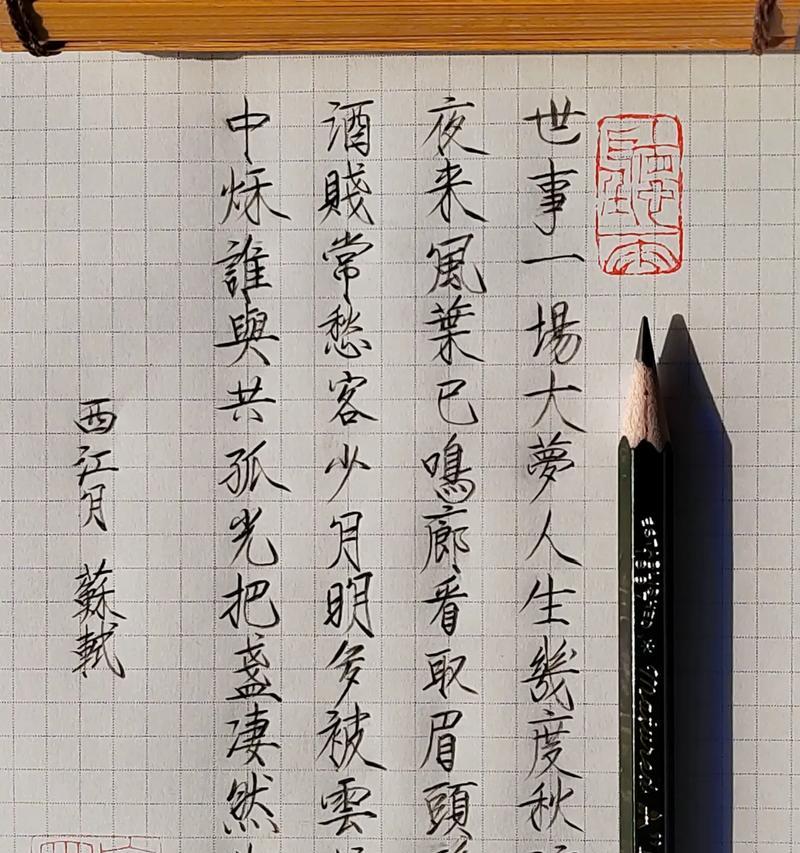 世事一場大夢人生幾度秋
夜来風葉已鳴廊看取眉頭
酒賤常愁客少月明多被雲
中秌誰與共孤光把盞凄然
西江月 蘇軾